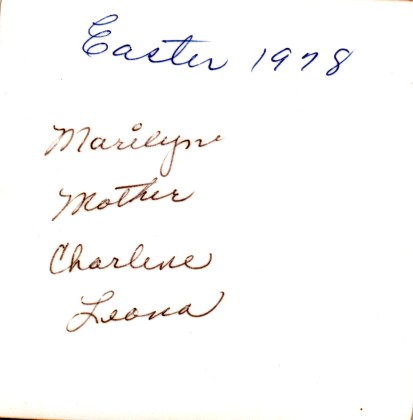 Easter 1978
Marilyn
Mother
Charlene
Leona